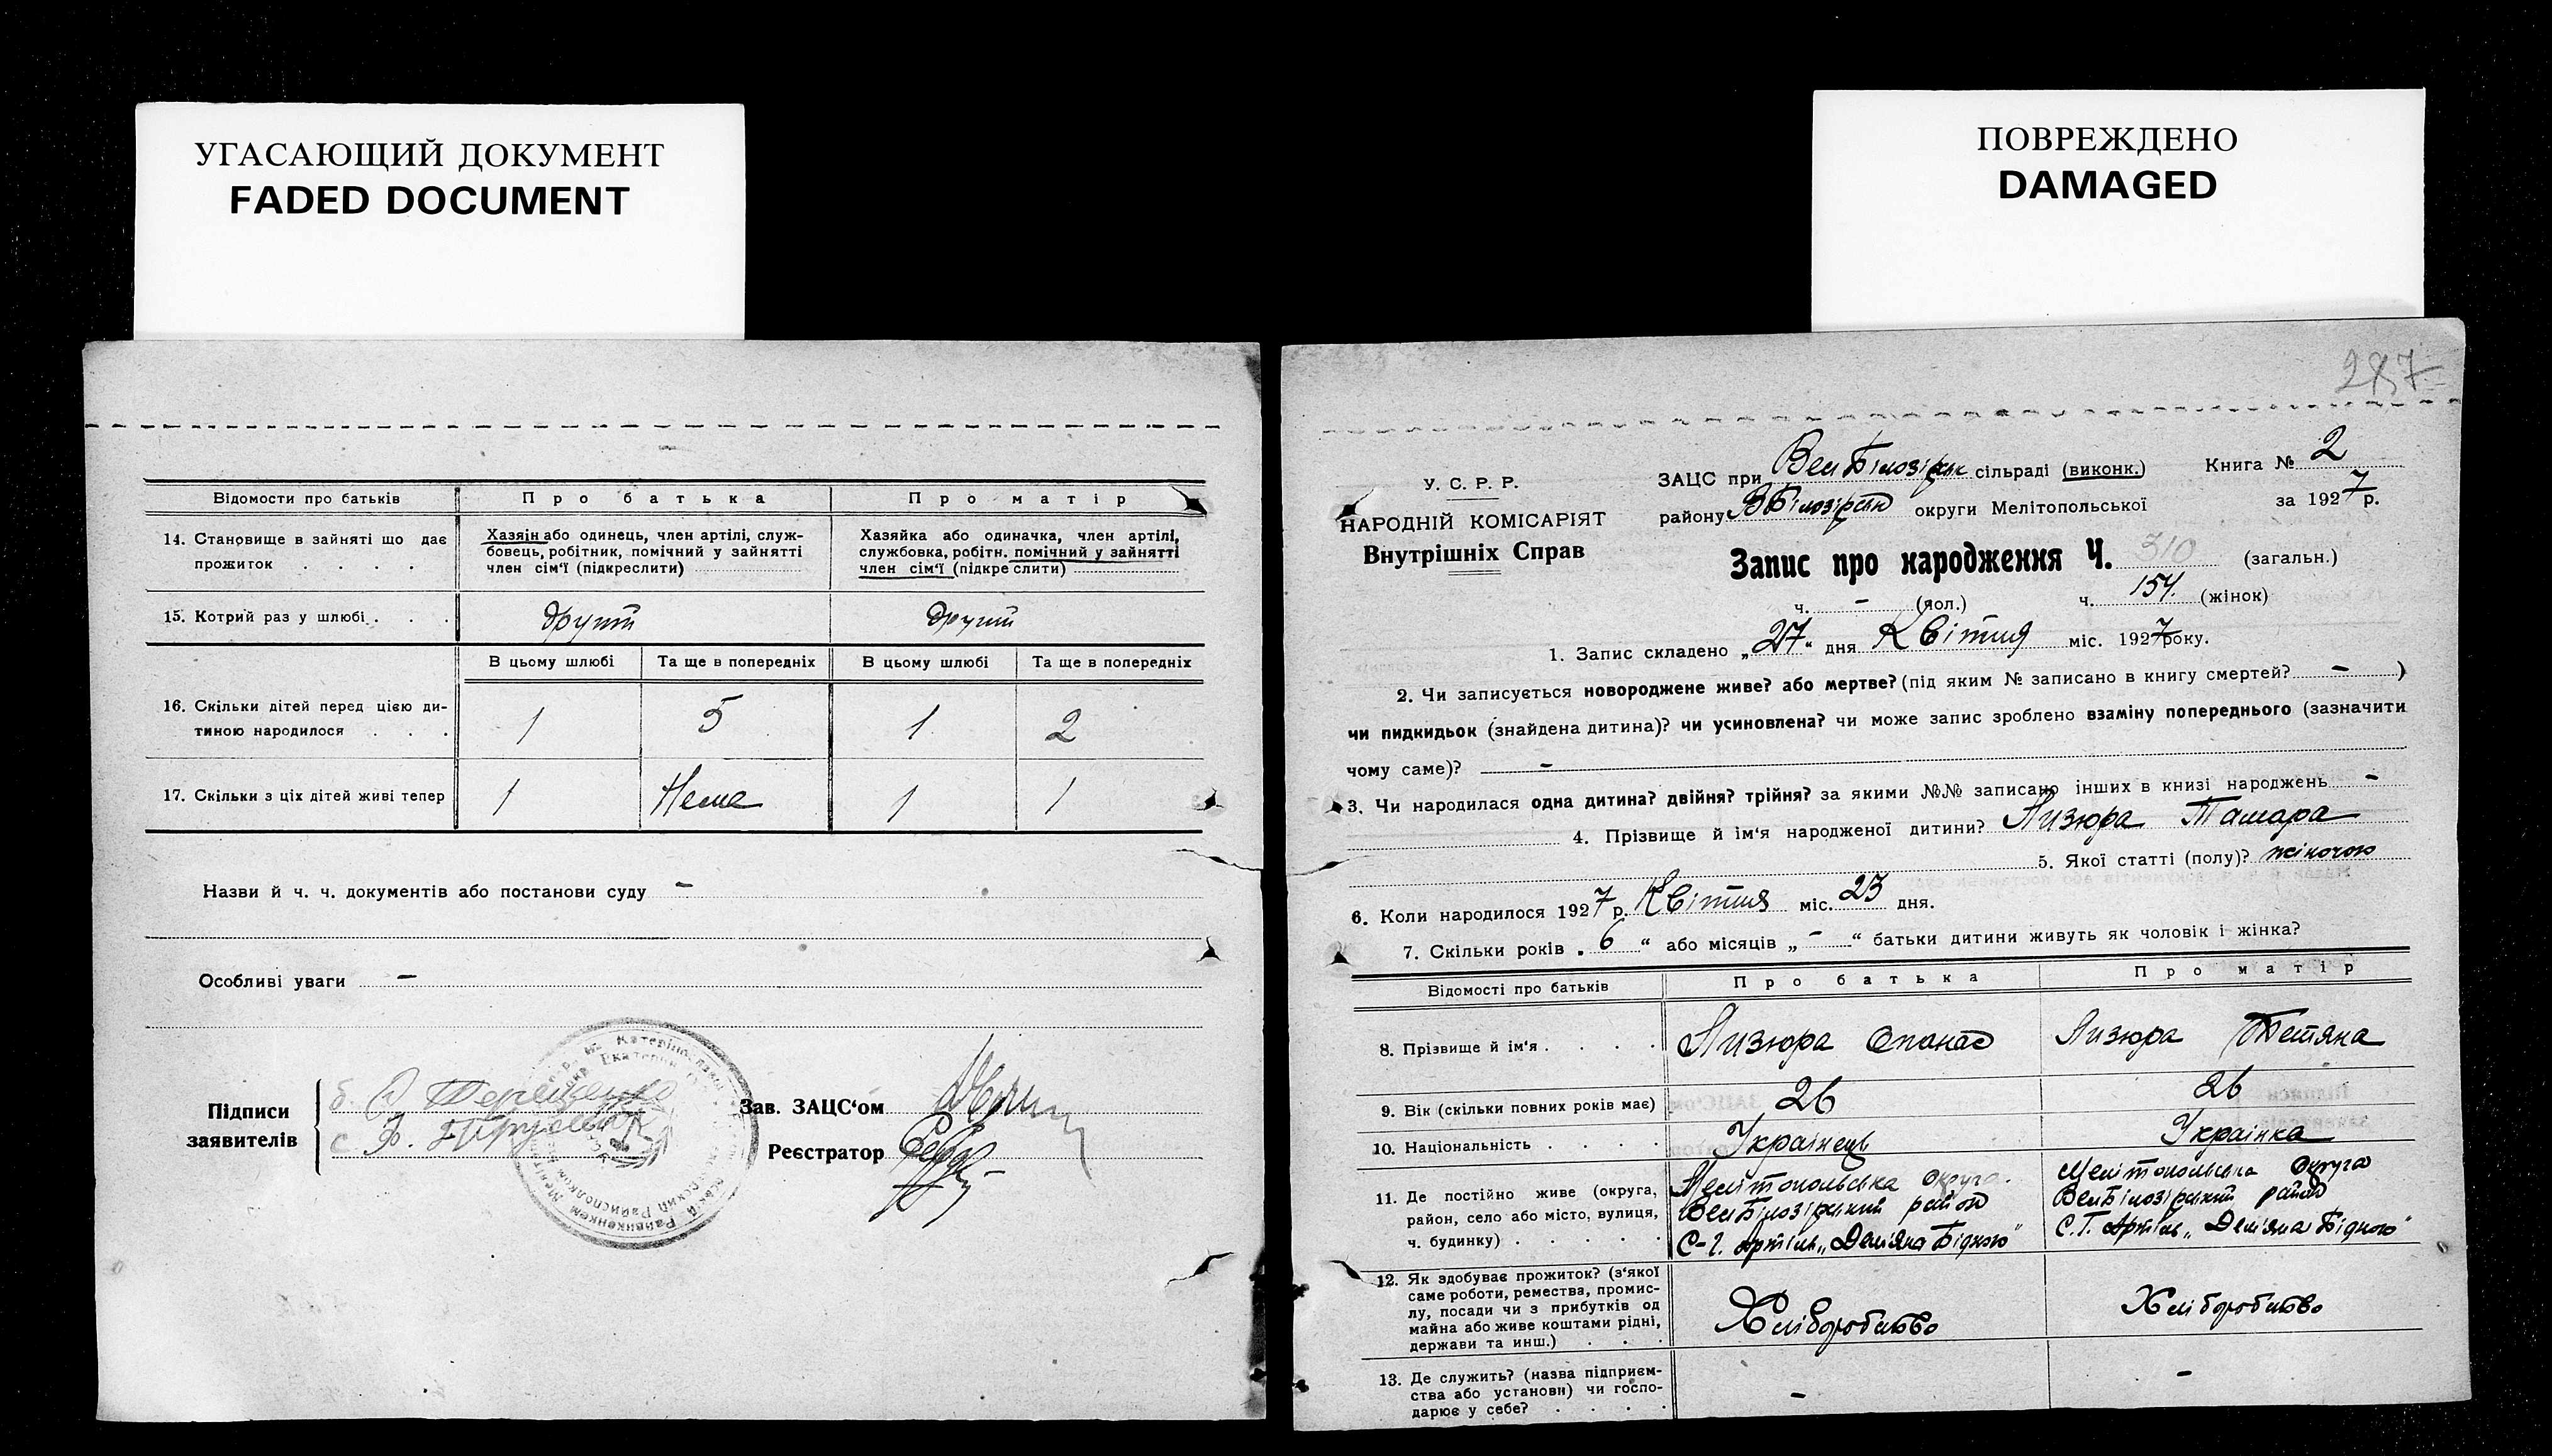 УГАСАЮЩИЙ ДОКУМЕНТ
FADED DOCUMENT
Відомости про батьків
Про батька
Про матір
14. Становище в зайняті що дає
прожиток . . . .
Хазяін або одинець, член артілі, служ-
бовець, робітник, помічний у зайнятті
член сім'ї (підкреслити)
Хазяйка або одиначка, член артілі,
службовка, робітн. помічний у зайнятті
член сім'ї (підкреслити)
15. Котрий раз у шлюбі . . .
другий
другий
В цьому шлюбі
Та ще в попередніх
В цьому шлюбі
Та ще в попередніх
16. Скільки дітей перед цією ди-
тиною народилося . . .
1
5
1
2
17. Скільки з ціх дітей живі тепер
1
Нема
1
1
Назви й ч. ч. документів або постанови суду –
Особливі уваги –
Підписи
заявителів
Зав. ЗАЦС'ом
Реєстратор
ПОВРЕЖДЕНО
DAMAGED
287
У. С. Р. Р.
НАРОДНІЙ КОМІСАРІЯТ
Внутрішніх Справ
ЗАЦС при ВелБілозірськ сільраді (виконк.)
Книга № 2
району ВБілозірськ округи Мелітопольської
за 1927 р.
Запис про народження Ч. 310 (загальн.)
ч. – (чол.) ч. 154. (жінок)
1. Запис складено „27“ дня Квітня міс. 1927 року.
2. Чи записується новороджене живе? або мертве? (під яким № записано в книгу смертей? – )
чи пидкидьок (знайдена дитина)? чи усиновлена? чи може запис зроблено взаміну попереднього (зазначити
чому саме)? –
3. Чи народилася одна дитина? двійня? трійня? за якими №№ записано інших в книзі народжень –
4. Прізвище й ім'я народженої дитини? Лизюра Тамара
5. Якої статті (полу)? жіночою
6. Коли народилося 1927 р. Квітня міс. 23 дня.
7. Скільки років „ 6 “ або місяців „ – “ батьки дитини живуть як чоловік і жінка?
Відомості про батьків
Про батька
Про матір
8. Прізвище й ім'я . . . .
Лизюра Опанас
Лизюра Тетяна
9. Вік (скільки повних років має)
26
26
10. Національність . . . .
Українець
Українка
11. Де постійно живе (округа,
район, село або місто, вулиця,
ч. будинку) . . . . .
Мелітопольська округа.
ВелБілозірський район
С-Г. артіль „Дем'яна Бідного"
Мелітопольська округа
ВелБілозірський район
С.Г. Артіль „Дем'яна Бідного"
12. Як здобуває прожиток? (з'якої
саме роботи, ремества, промис-
лу, посади чи з прибутків од
майна або живе коштами рідні,
держави та инш.) . . .
Хліборобство
Хліборобство
13. Де служить? (назва підприєм-
ства або установи) чи госпо-
дарює у себе? . . . .
–
–